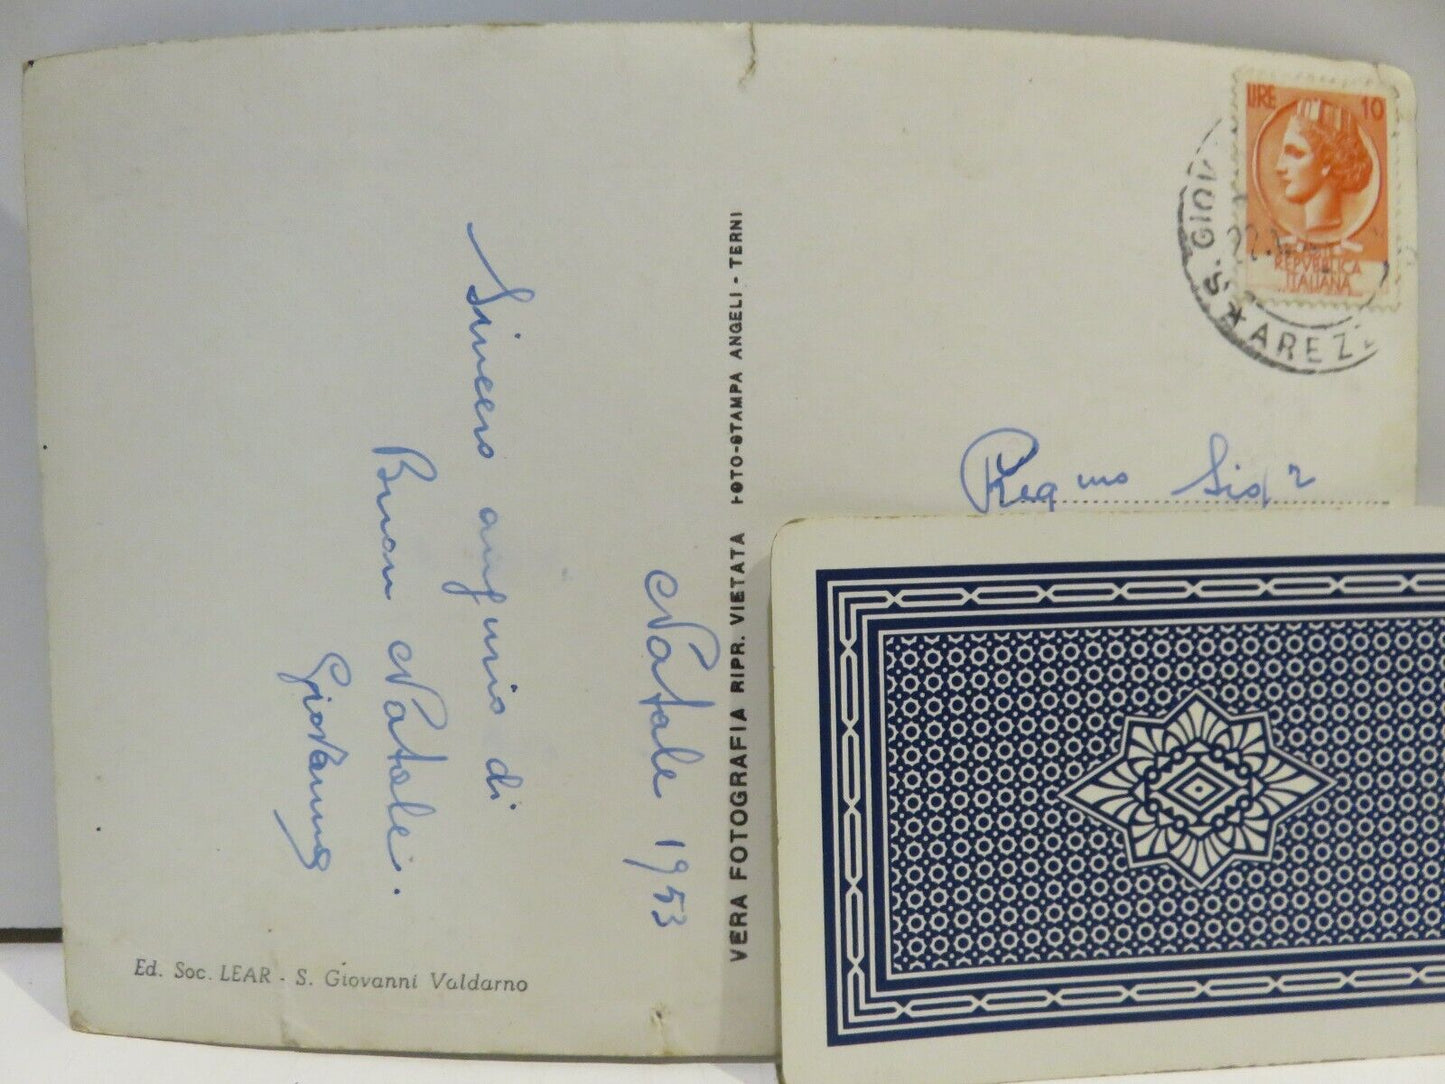 Natale 1953
Sincero augurio di
Buon Natale.
Giovanna
Ed. Soc. LEAR - S. Giovanni Valdarno
VERA FOTOGRAFIA RIPR. VIETATA FOTO-STAMPA ANGELI - TERNI
LIRE 10
REPVBBLICA
ITALIANA
S. GIOV
AREZ
Sig.r